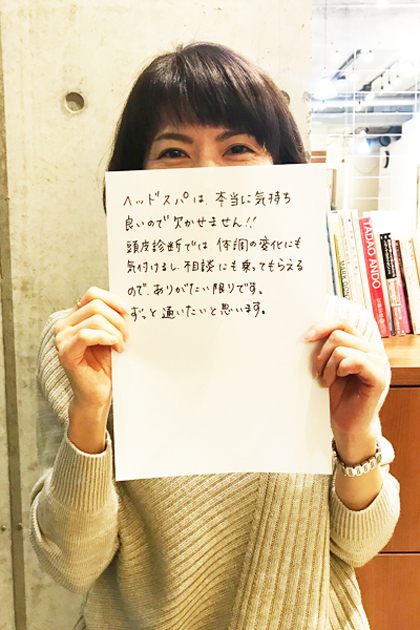 ヘッドスパは、本当に気持ち
良いので欠かせません!!
頭皮診断では体調の変化にも
気付けるし、相談にも乗ってもらえる
ので、ありがたい限りです。
ずっと通いたいと思います。
TADAO ANDO